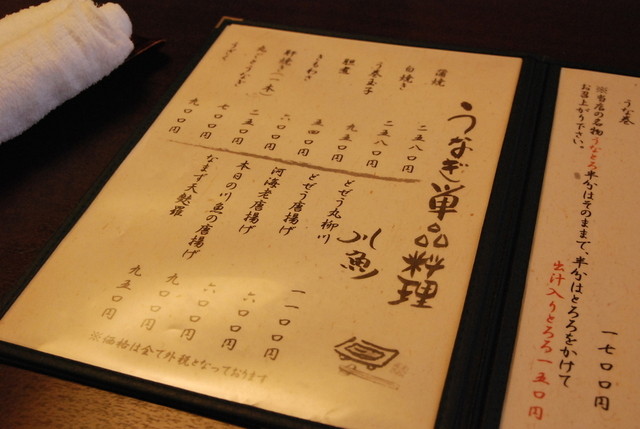 うな巻 一七〇〇円
※当店の名物うなとろ半分はそのままで、半分はとろろをかけて
お召上がり下さい。
出汁入りとろろ一五〇円
うなぎ単品料理
蒲焼 二五八〇円
白焼き 二五八〇円
う巻玉子 九五〇円
胆煮 五四〇円
きもわさ 六〇〇円
肝焼き(一本) 二五〇円
七〇〇円
うざく 九〇〇円
川魚
どぜう丸柳川 一一〇〇円
どぜう唐揚げ 六〇〇円
河海老唐揚げ 六〇〇円
本日の川魚の唐揚げ 九〇〇円
なまず天麩羅 九五〇円
※価格は全て外税となっております